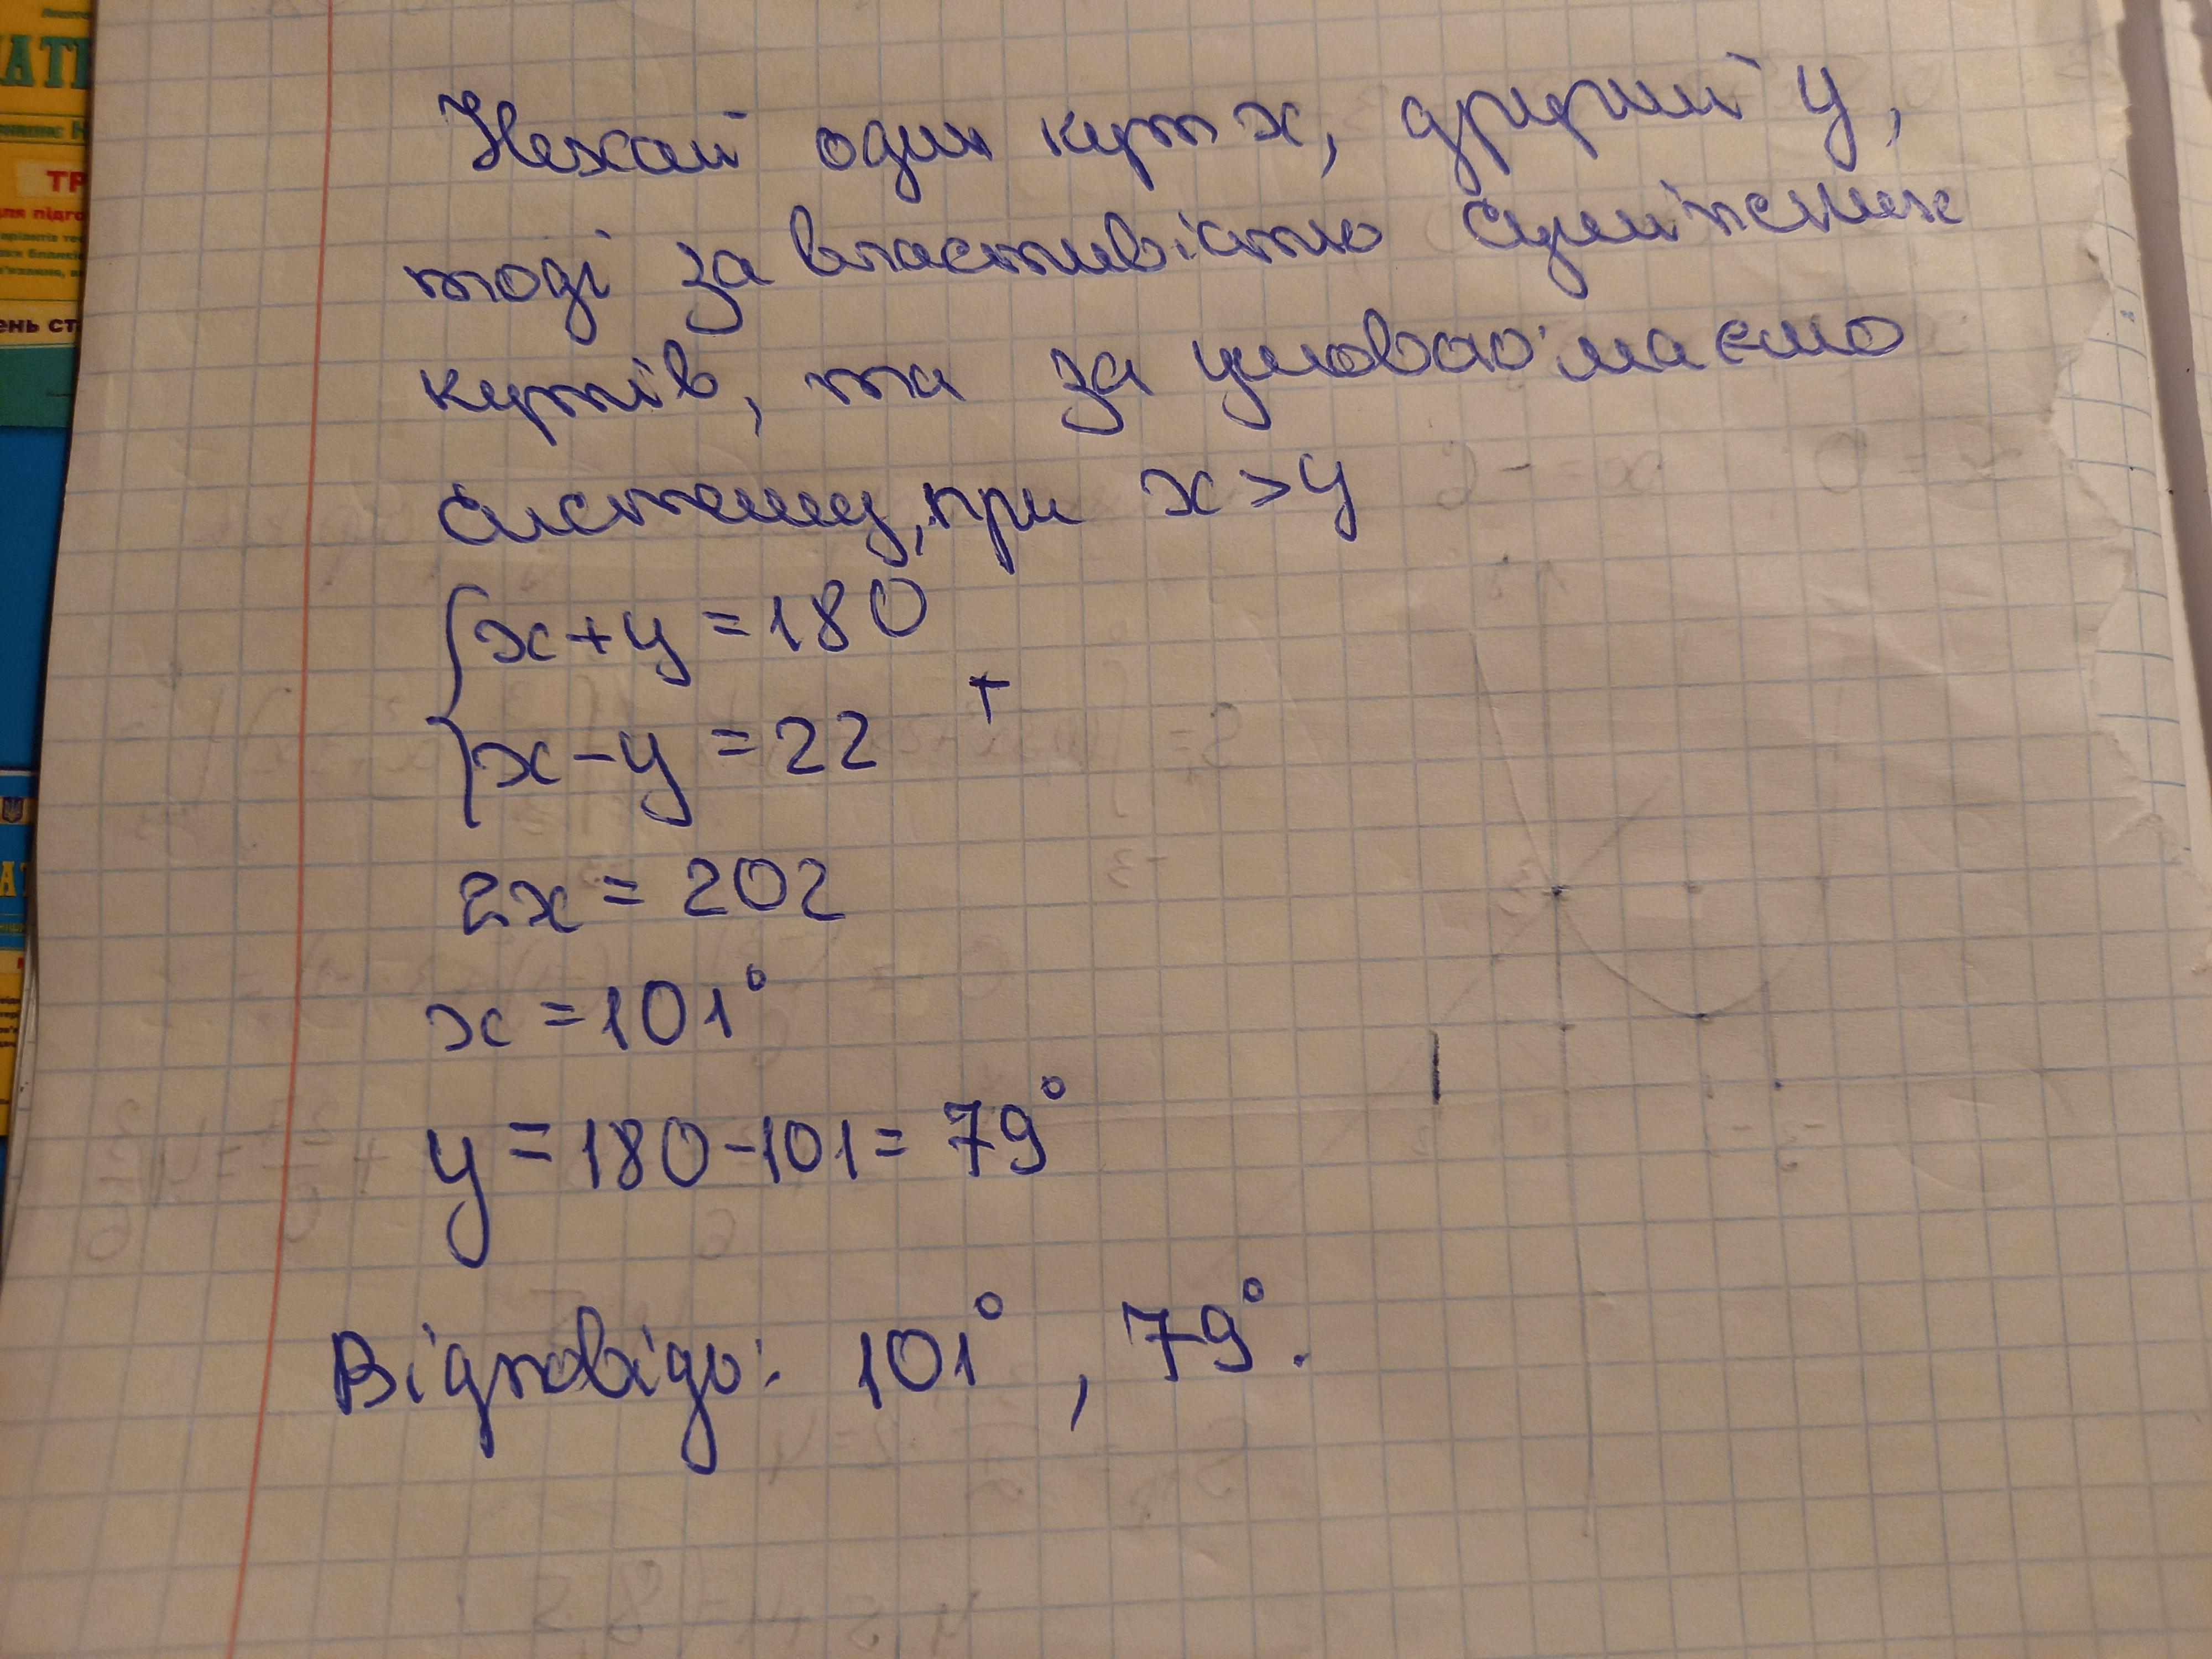 Нехай один кут x, другий y,
тоді за властивістю суміжних
кутів, та за умовою маємо
систему, при x > y
x + y = 180
+
x - y = 22
2x = 202
x = 101°
y = 180 - 101 = 79°
Відповідь: 101°, 79°.